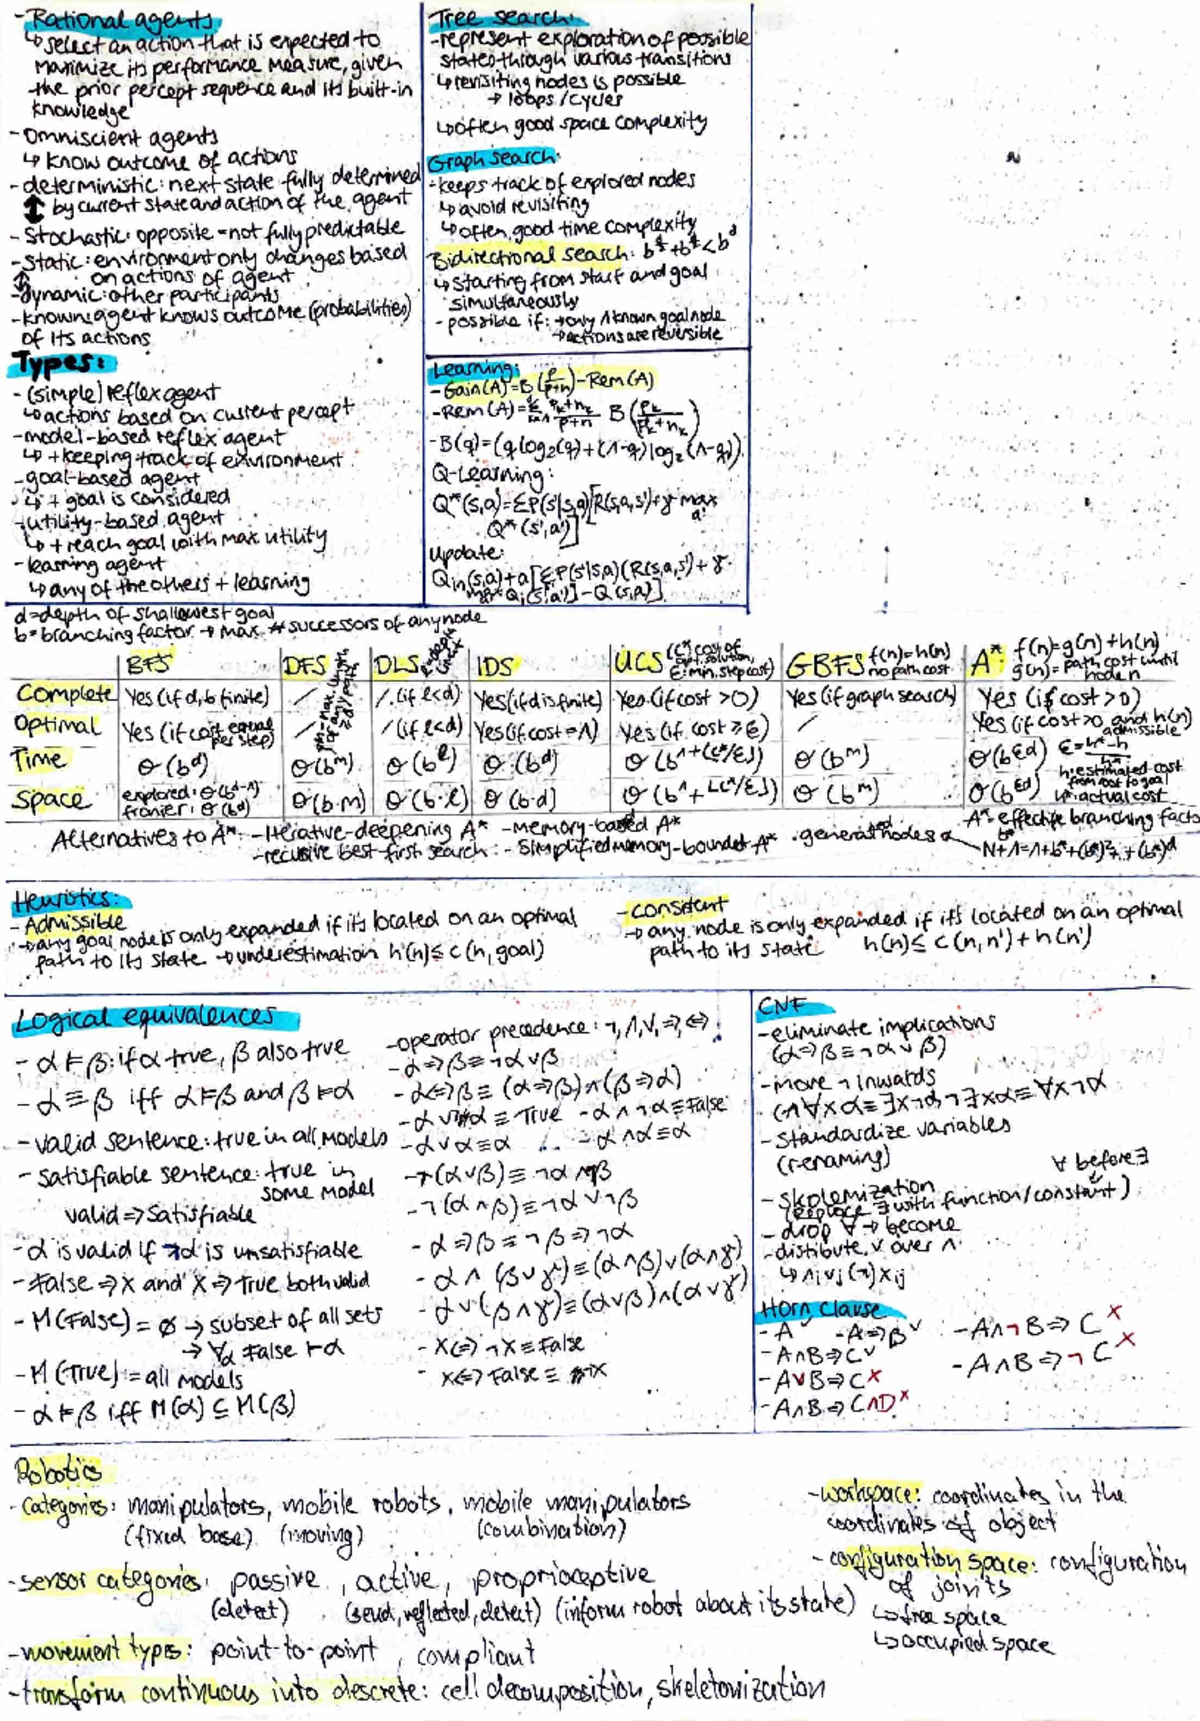 -Rational agents
↳select an action that is expected to
maximize its performance measure, given
the prior percept sequence and its built-in
knowledge
-Omniscient agents
↳ know outcome of actions
-deterministic: next state fully determined
by current state and action of the agent
-Stochastic: opposite = not fully predictable
-static: environment only changes based
on actions of agent
-dynamic: other participants
-known: agent knows outcome (probabilities)
of its actions
Types:
-(simple) reflex agent
↳actions based on current percept
-model-based reflex agent
↳ + keeping track of environment
-goal-based agent
↳ + goal is considered
-utility-based agent
↳ + reach goal with max utility
-learning agent
↳ any of the others + learning
Tree search:
-represent exploration of possible
states through various transitions
↳ revisiting nodes is possible
→ loops/cycles
↳often good space complexity
Graph search:
-keeps track of explored nodes
↳ avoid revisiting
↳often good time complexity
Bidirectional search: b^(d/2)+b^(d/2)<b^d
↳ starting from start and goal
simultaneously
-possible if: →only 1 known goal node
→actions are reversible
Learning:
-Gain(A)=B(p/(p+n))-Rem(A)
-Rem(A)=Σ (pₖ+nₖ)/(p+n) B(pₖ/(pₖ+nₖ))
-B(q)=-(q log₂(q)+(1-q)log₂(1-q))
Q-Learning:
Q*(s,a)=ΣP(s'|s,a)[R(s,a,s')+γ max a'
Q*(s',a')]
Update:
Qᵢₙ(s,a)+a[ΣP(s'|s,a)(R(s,a,s')+γ·
max Qᵢ(s',a')]-Q(s,a)]
d=depth of shallowest goal
b=branching factor → max. # successors of any node
BFS DFS DLS IDS UCS (C*cost of opt.solution, ε:min.step cost) GBFS f(n)=h(n) no path cost A*: f(n)=g(n)+h(n) g(n)=path cost until node n
m=max. depth of any path ≥d
Complete Yes (if d,b finite) / /(if ℓ<d) Yes(if d is finite) Yes (if cost >0) Yes (if graph search) Yes (if cost >0)
Optimal Yes (if cost equal per step) / /(if ℓ<d) Yes(if cost=1) Yes (if cost ≥ε) / Yes (if cost >0 and h(n) admissible
Time O(b^d) O(b^m) O(b^ℓ) O(b^d) O(b^(1+⌊C*/ε⌋)) O(b^m) O(b^(εd)) ε=(h*-h)/h*
h:estimated cost from root to goal
Space explored: O(b^(d-1)) fronier: O(b^d) O(b·m) O(b·ℓ) O(b·d) O(b^(1+⌊C*/ε⌋)) O(b^m) O(b^(εd)) h*:actual cost
Alternatives to A*: -Iterative-deepening A* -memory-based A*
-recusive best-first search -Simplified memory-boundet A* ·generated nodes
A*-effektife branching facto
b*
N+1=1+b*+(b*)²+..+(b*)^d
Heuristics:
-Admissible
→any goal node is only expanded if its located on an optimal
path to its state →underestimation h(n)≤c(n,goal)
-consistent
→ any node is only expanded if it's located on an optimal
path to its state h(n)≤c(n,n')+h(n')
Logical equivalences
-α⊨β: if α true, β also true
-α≡β iff α⊨β and β⊨α
-valid sentence: true in all models
-Satisfiable sentence: true in
some model
valid⇒satisfiable
-α is valid if ¬α is unsatisfiable
-False⇒X and X⇒True both valid
-M(False)=ø → subset of all sets
→ ∀α False ⊢α
-M(True)=all models
-α⊨β iff M(α)⊆M(β)
-operator precedence: ¬,∧,∨,⇒,⇔
-α⇒β≡¬α∨β
-α⇔β≡(α⇒β)∧(β⇒α)
-α∨¬α≡True -α∧¬α≡False
-α∨α≡α -α∧α≡α
-¬(α∨β)≡¬α∧¬β
-¬(α∧β)≡¬α∨¬β
-α⇒β≡¬β⇒¬α
-α∧(β∨γ)≡(α∧β)∨(α∧γ)
-α∨(β∧γ)≡(α∨β)∧(α∨γ)
-X⇔¬X≡False
-X⇔False≡¬X
CNF
-eliminate implications
(α⇒β≡¬α∨β)
-move ¬ inwards
(¬∀xα≡∃x¬α, ¬∃xα≡∀x¬α
-Standardize variables
(renaming)
∀ before ∃
-Skolemization
(Replace ∃ with function/constant)
-drop ∀ → become
-distibute ∨ over ∧
↳∧i∨j(¬)Xij
Horn Clause
-A ✓ -A⇒B ✓ -A∧¬B⇒C x
-A∧B⇒C ✓ -A∧B⇒¬C x
-A∨B⇒C x
-A∧B⇒C∧D x
Robotics
-Categories: manipulators, mobile robots, mobile manipulators
(fixed base) (moving) (combination)
-sensor categories: passive, active, proprioceptive
(detect) (send,reflected,detect) (inform robot about its state)
-movement types: point-to-point, compliant
-transform continuous into descrete: cell decomposition, skeletonization
-workspace: coordinates in the
coordinates of object
-configuration space: configuration
of joints
↳free space
↳occupied space